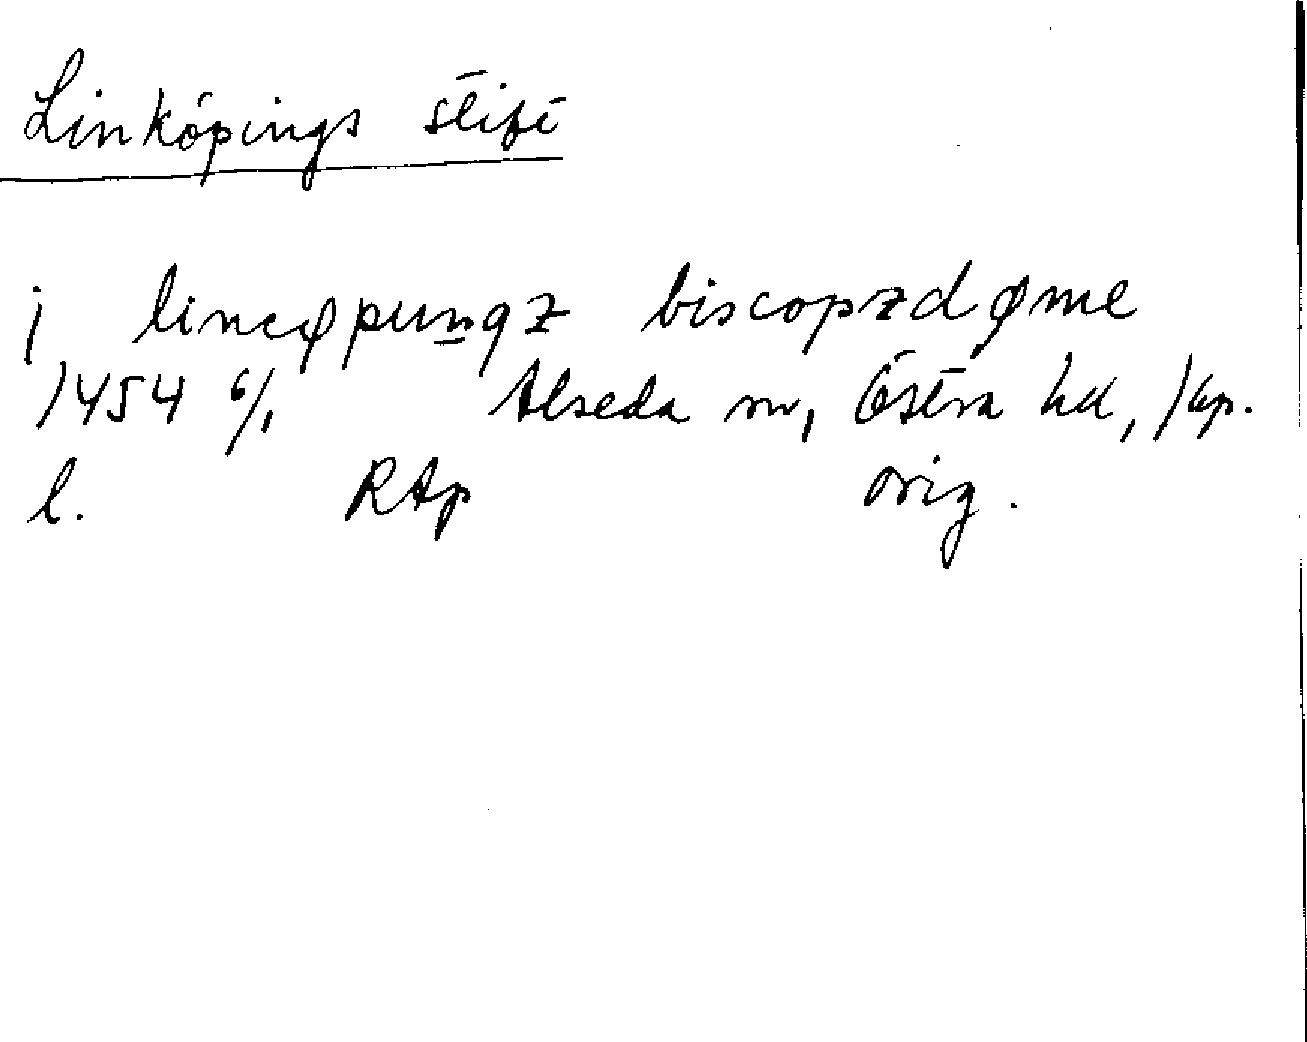 Linköpings stift
j lincøpungz biscopzdøme
1454 6/1 Alseda sn, Östra hd, Jkp.
l. RAp orig.